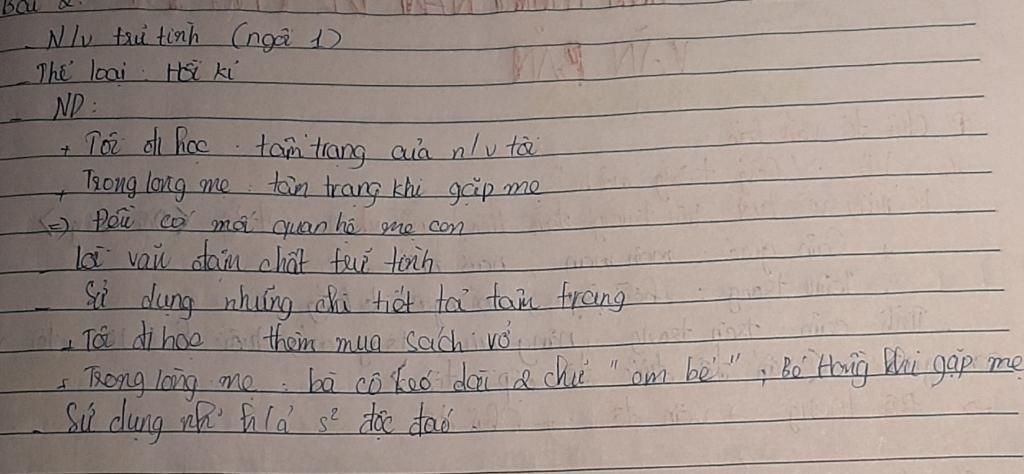 Bài 2.
- N/v trữ tình (ngôi 1)
- Thể loại: Hồi kí
- ND:
+ Tôi đi học: tâm trạng của n/v tôi
+ Trong lòng mẹ: tâm trạng khi gặp mẹ
=> Đều có mối quan hệ mẹ con
- Lời văn đậm chất trữ tình
- Sử dụng những chi tiết tả tâm trạng
+ Tôi đi học: thèm mua sách vở
+ Trong lòng mẹ: bà cô kéo dài 2 chữ "em bé", Bé Hồng khi gặp mẹ
- Sử dụng h/ả s² độc đáo.